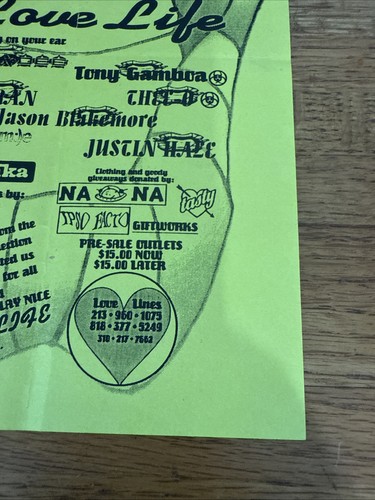 Love Life
on your ear
Tony Gamboa
THEE-O
Jason Blakemore
JUSTIN HAZE
Clothing and goody
giveaways donated by:
ka
NA NA
tasty
a by:
IPSO FACTO
GIFTWORKS
PRE-SALE OUTLETS
$15.00 NOW
$15.00 LATER
om the
ection
ted us
for all
LAY NICE
LIFE
Love Lines
213 • 960 • 1075
818 • 377 • 5249
310 • 217 • 7662